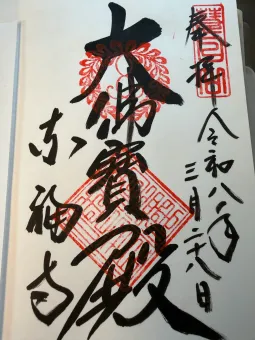 奉拝 令和八年
三月二十八日
大佛寶殿
東福寺